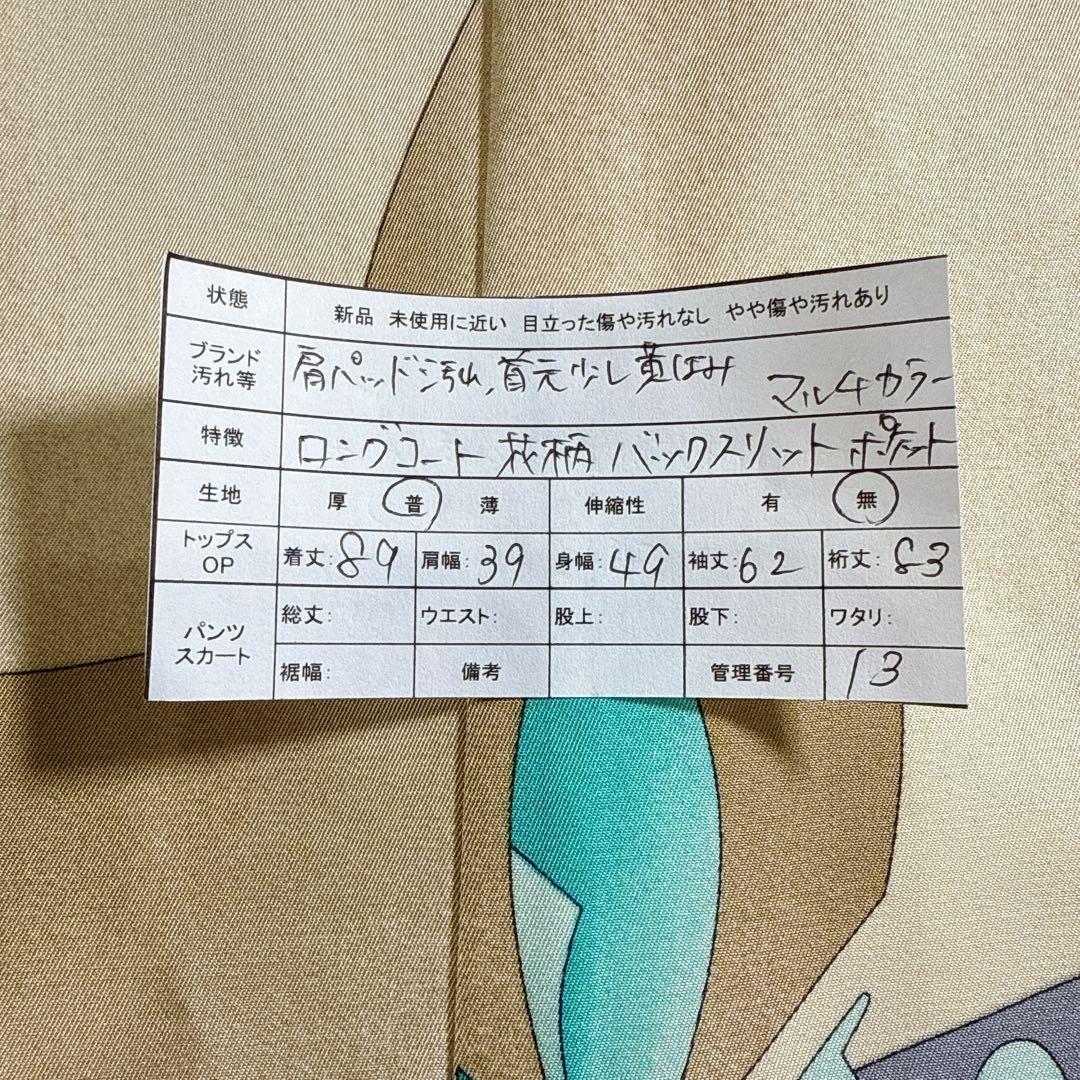 状態 新品 未使用に近い 目立った傷や汚れなし やや傷や汚れあり
ブランド 汚れ等 肩パッド汚れ、首元少し黄ばみ マルチカラー
特徴 ロングコート 花柄 バックスリット ポケット
生地 厚 普 薄 伸縮性 有 無
トップス OP 着丈:89 肩幅:39 身幅:49 袖丈:62 裄丈:83
パンツ スカート 総丈: ウエスト: 股上: 股下: ワタリ:
裾幅: 備考 管理番号 13